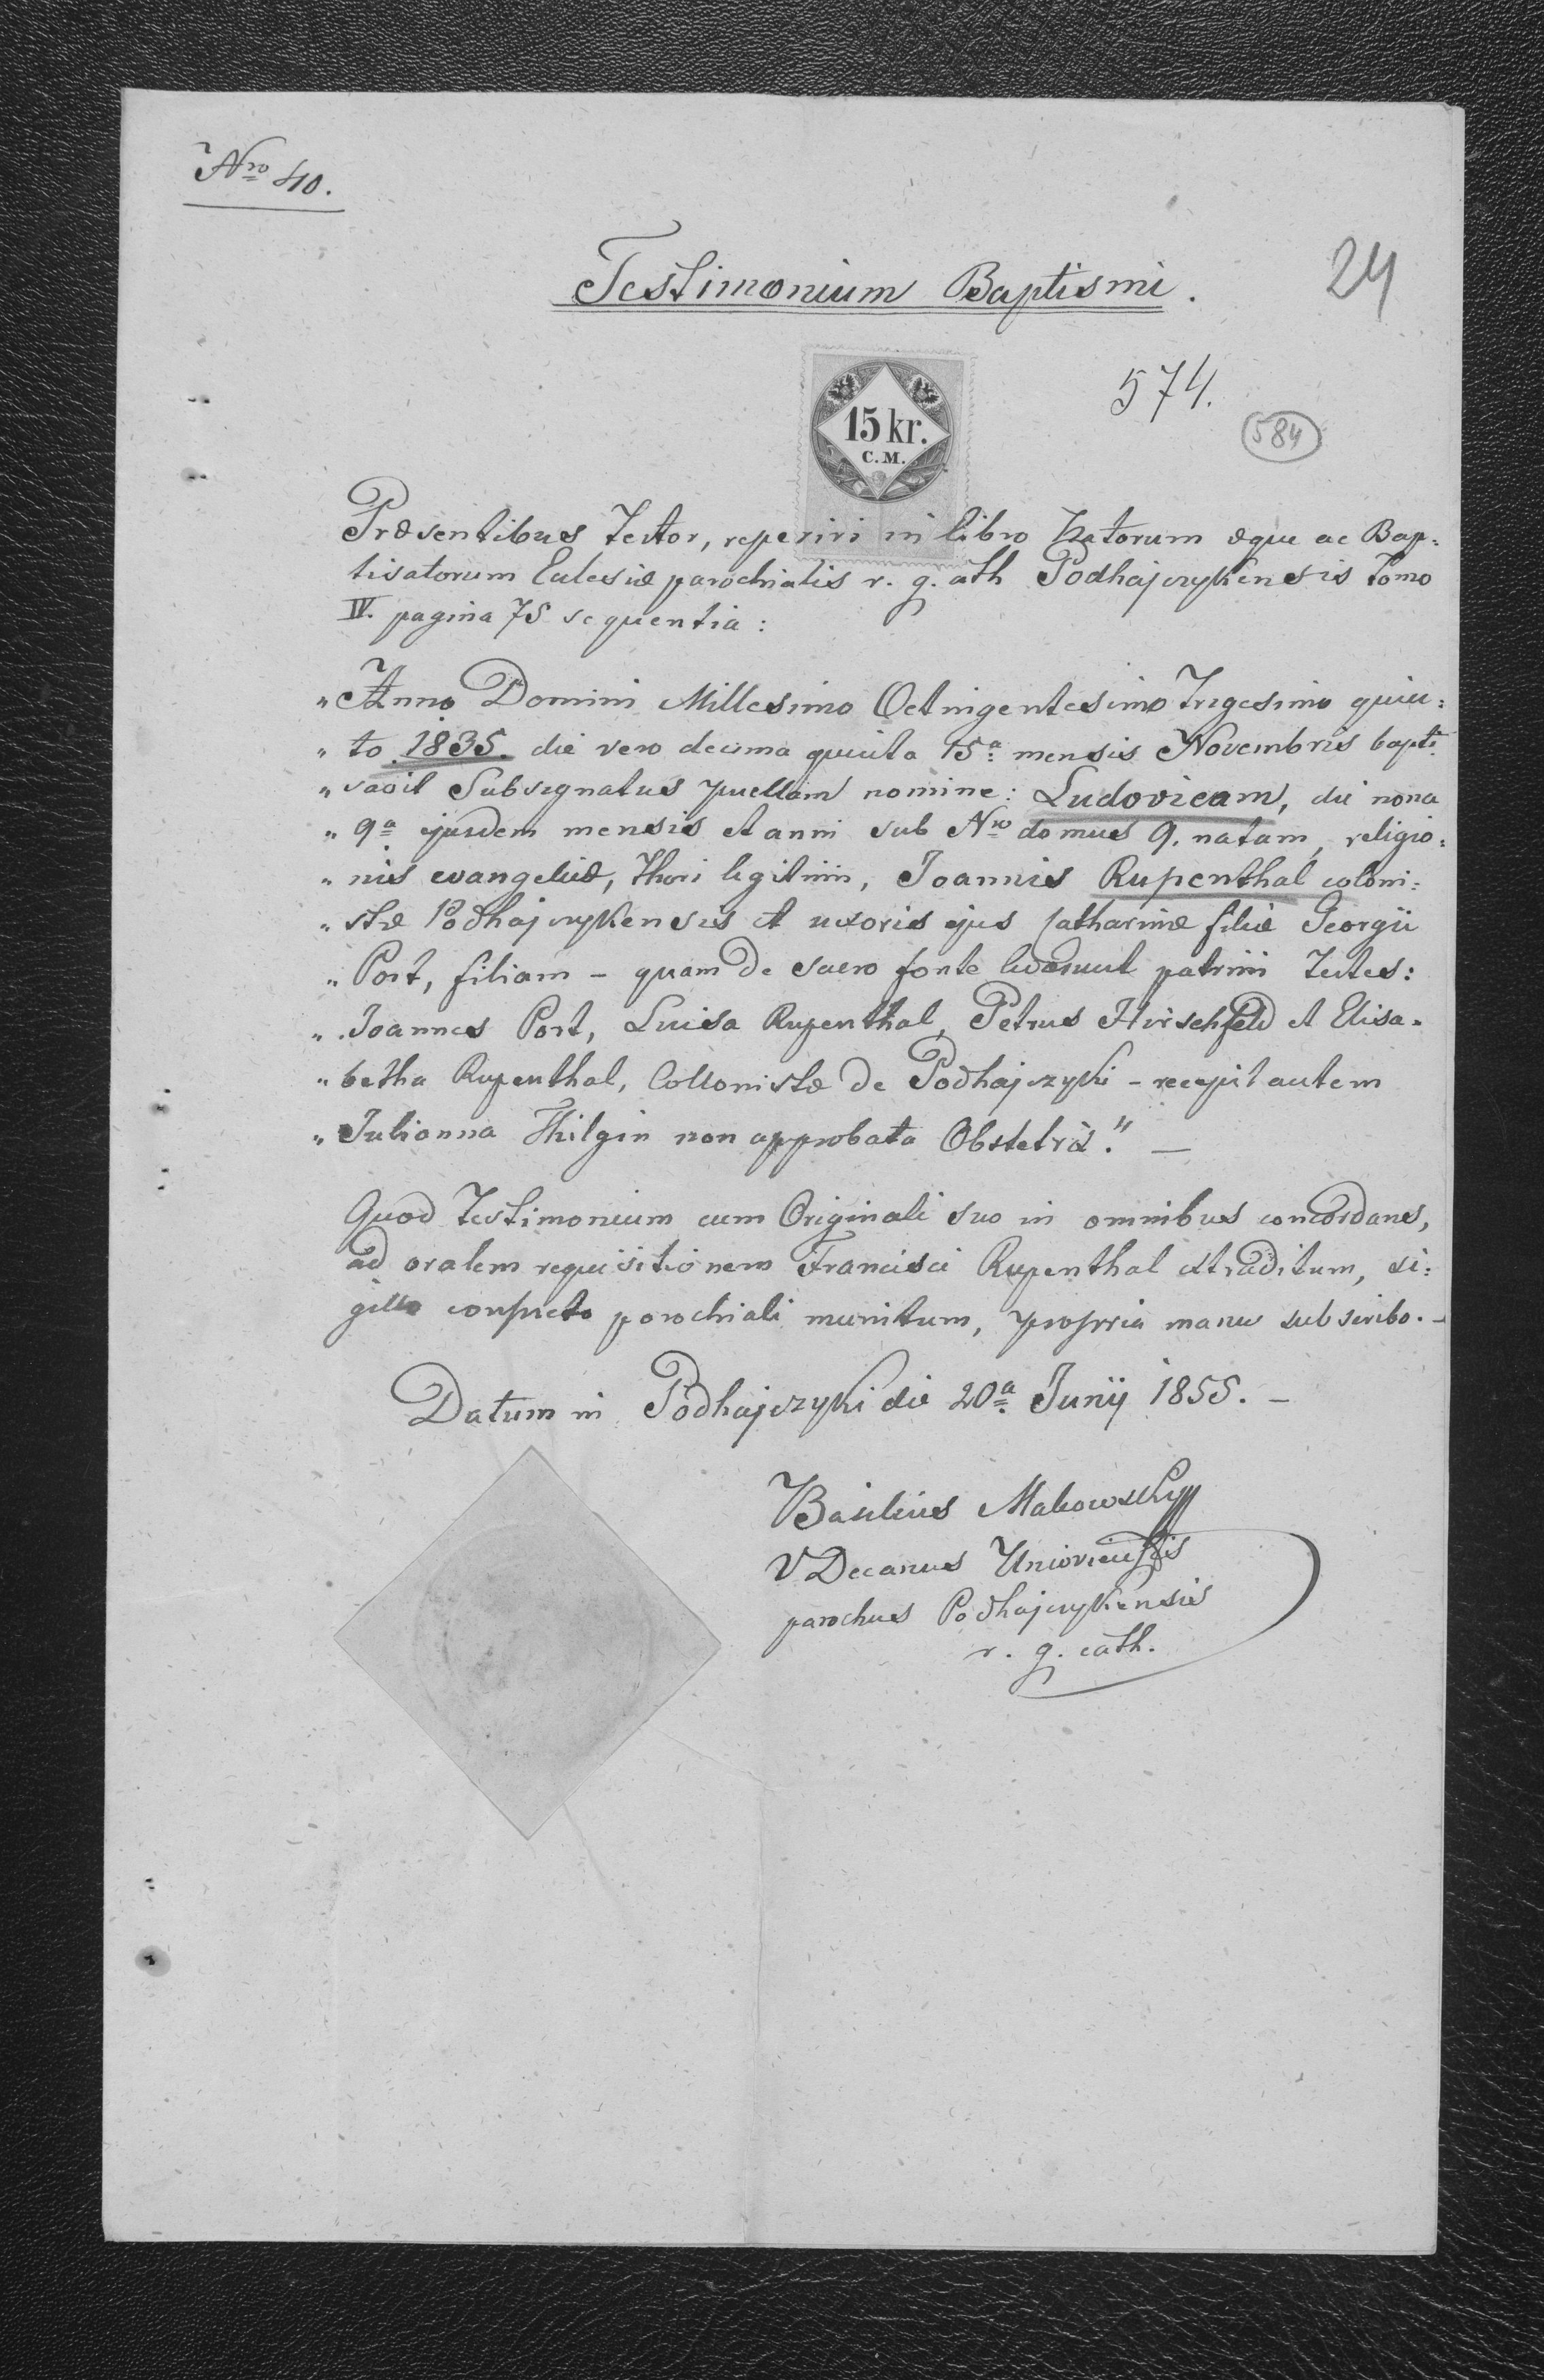 Nro 40.
Testimonium Baptismi.
24
574.
584
15 kr.
C.M.
Præsentibus Testor, reperiri in libro Natorum æque ac Bap:
tisatorum Eclesiæ parochialis r. g. cath Podhajczykensis Tomo
IV. pagina 75 sequentia:
"Anno Domini Millesimo Octingentesimo Trigesimo quin:
"to 1835. die vero decima quinta 15a mensis Novembris bapti
"savit Subsignatus puellam nomine: Ludovicam, die nona
"9a ejusdem mensis et anni sub Nro domus 9. natam, religio:
"nis evangelicæ, thori legitimi, Joannis Rupenthal coloni:
"stæ Podhajczykensis et uxoris ejus Catharinæ filiæ Georgii
"Port, filiam - quam de sacro fonte levarunt patrini Testes:
"Joannes Port, Luisa Rupenthal, Petrus Hirschfeld et Elisa-
"betha Rupenthal, Collonistæ de Podhajczyki - recepit autem
"Julianna Thilgin non approbata Obstetrix." —
Quod Testimonium cum Originali suo in omnibus concordans,
ad oralem requisitionem Francisci Rupenthal extraditum, si:
gillo consveto parochiali munitum, propria manu subscribo. -
Datum in Podhajczyki die 20a Junij 1855. -
Basilius Makowsky
VDecanus
parochus Podhajczykensis
r. g. cath.